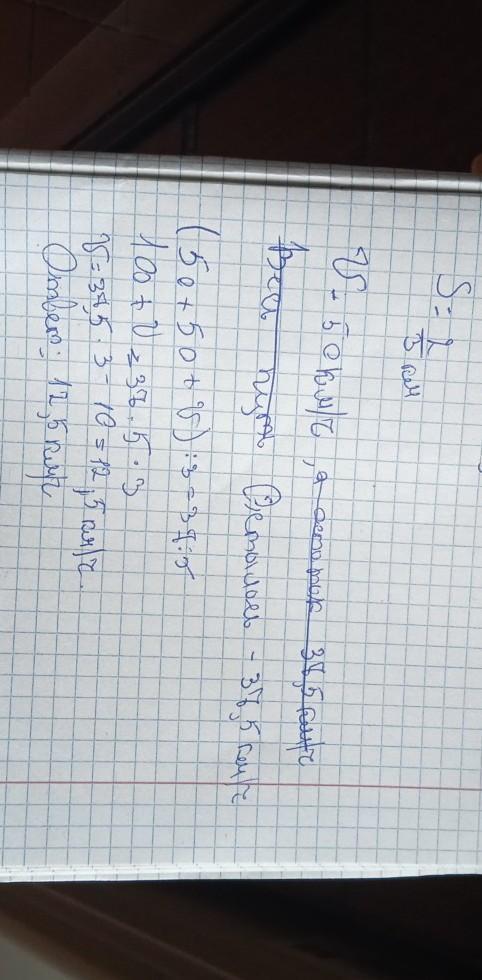 S = 2/3 км
V - 50 км/ч, а остаток 37,5 км/ч
Весь путь Остальн - 37,5 км/ч
(50 + 50 + V) : 3 = 37:5
100 + V = 37.5 · 3
V = 37,5 · 3 - 10 = 12,5 км/ч.
Ответ: 12,5 км/ч